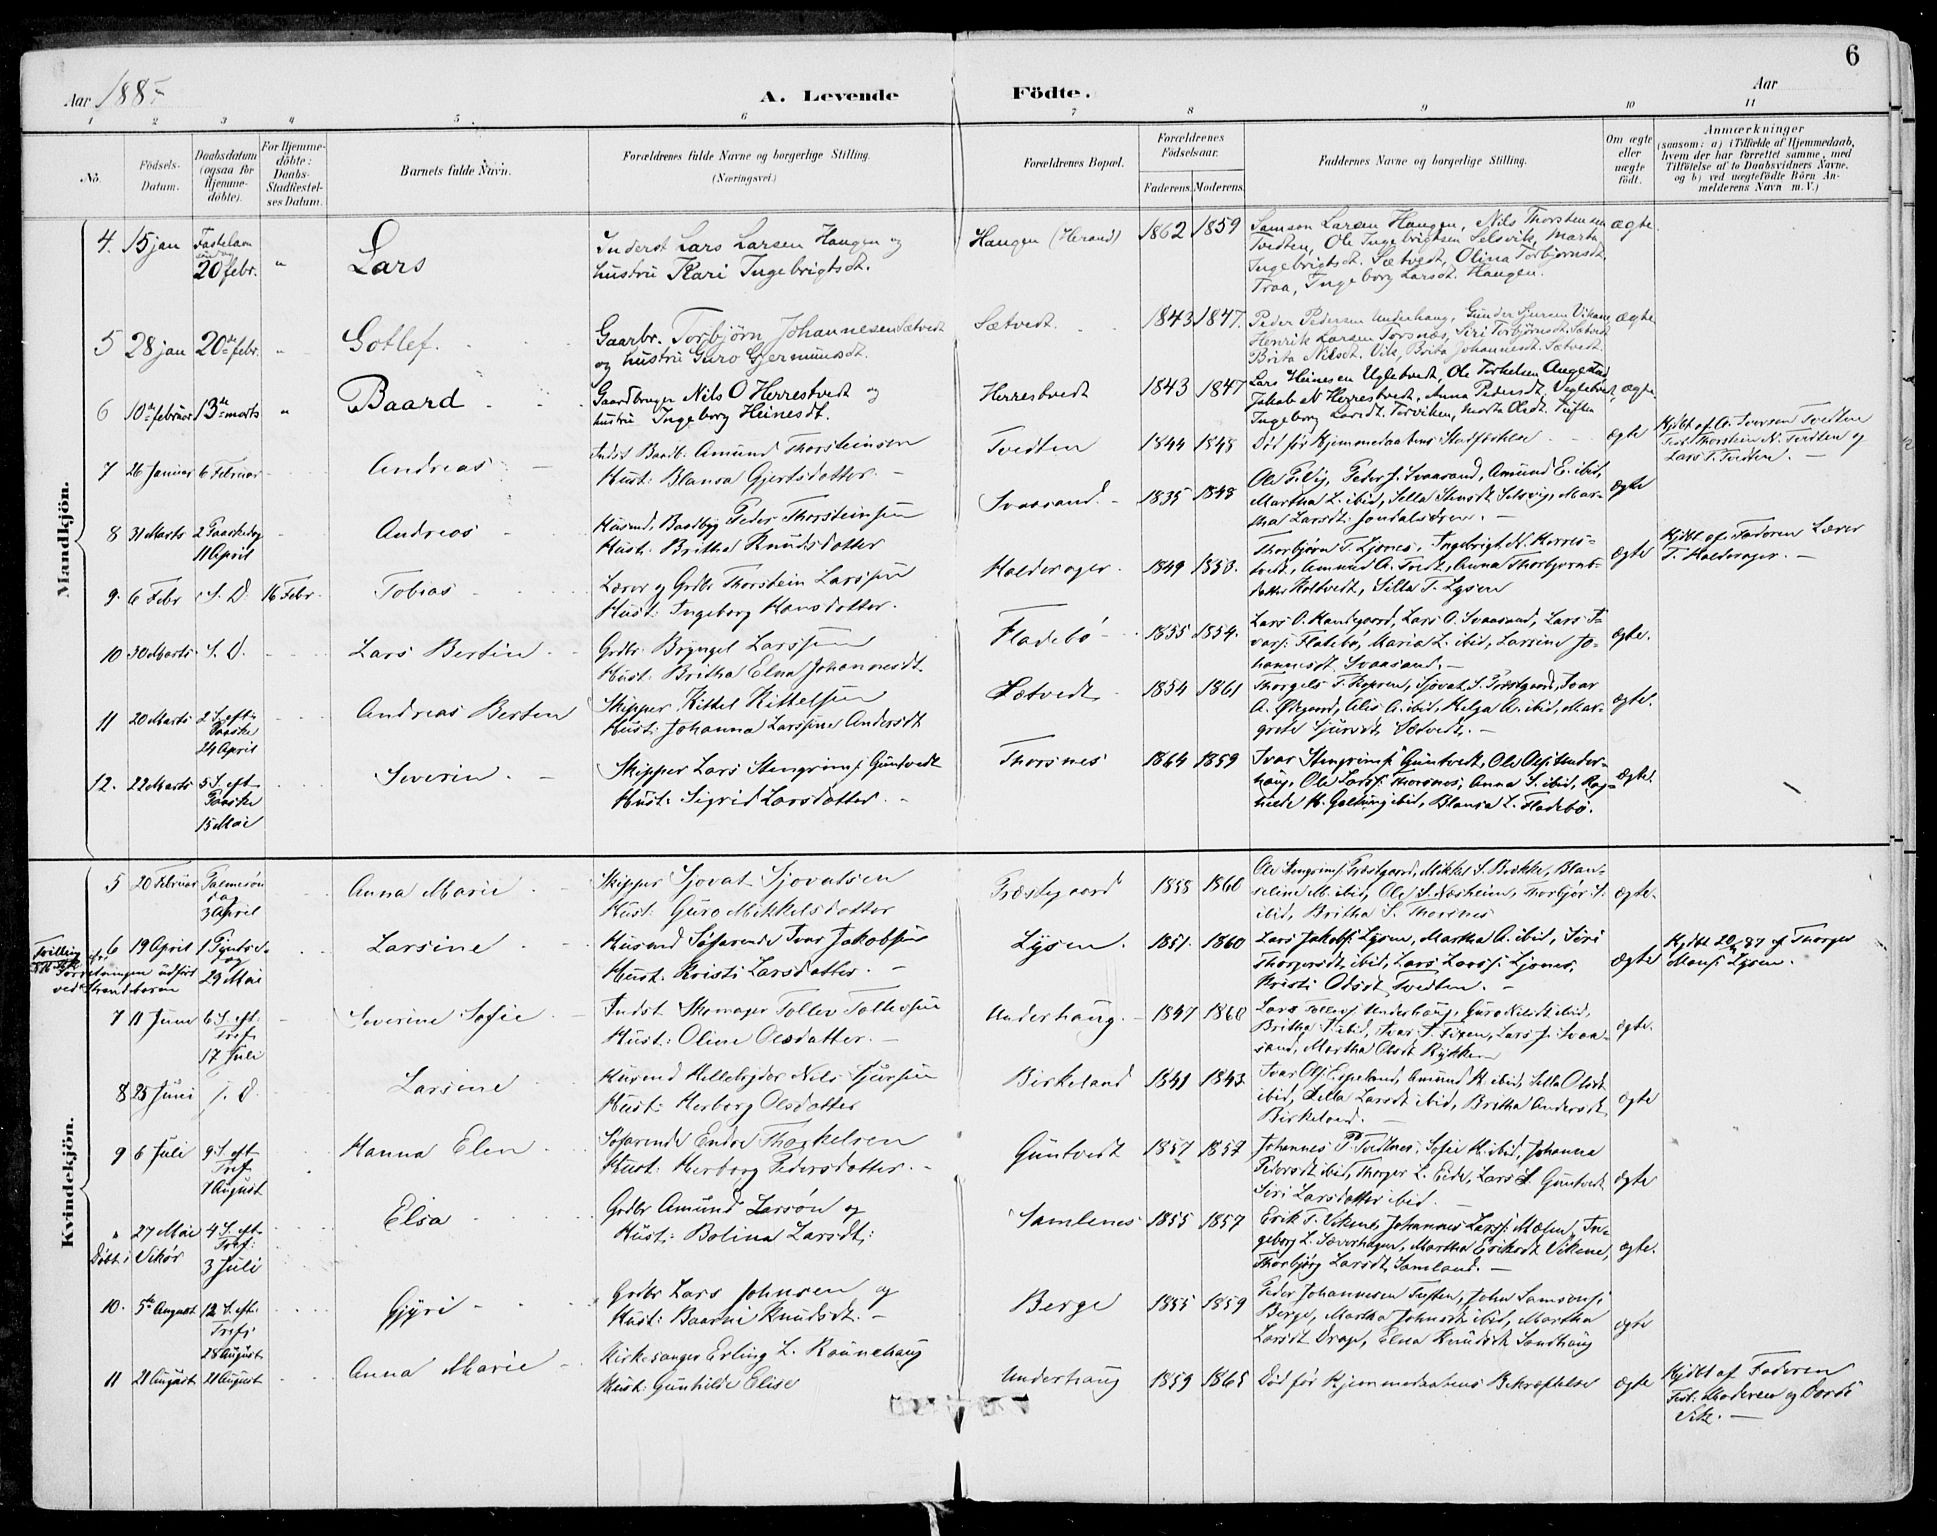 6
Aar 188
A. Levende Födte.
Aar
1 2 3 4 5 6 7 8 9 10 11
No.
Födsels-Datum.
Daabsdatum (ogsaa for Hjemme-döbte).
For Hjemme-döbte: Daabs-Stadfæstel-ses Datum.
Barnets fulde Navn.
Forældrenes fulde Navne og borgerlige Stilling.
(Næringsvei.)
Forældrenes Bopæl.
Forældrenes Födselsaar.
Faderens. Moderens.
Faddernes Navne og borgerlige Stilling.
Om ægte eller uægte födt.
Anmærkninger
(saasom: a) i Tilfælde af Hjemmedaab,
hvem der har forrettet samme, med
Tilföielse af to Daabsvidners Navne.
og b) ved uægtefödte Börn An-
melderens Navn m. V.)
Mandkjön.
4. 15 jan Fastelavn 20 febr. " Lars
Inderst Lars Larsen Haugen og
hustru Kari Ingebrigtsdt.
Haugen (Herand) 1862 1859
Samson Larsen Haugen, Nils Thorstensen
Tvedten, Ole Ingebrigtsen Selsvik, Marta
Ingebrigtsdt. Sætvedt, Olina Torbjørnsdt.
Traa, Ingeborg Larsdt. Haugen.
ægte.
5 28 jan 20de febr. " Gotlef.
Gaarbr. Torbjörn Johannesen Sætvedt
og hustru Guro Gjermundsdt.
Sætvedt. 1843 1847.
Peder Pedersen Underhaug, Gunder Sjursen Vikane
Henrik Larsen Torsnæs, Siri Torbjørnsdt. Sætvedt
Brita Nilsdt. Vik, Brita Johannesdt. Sætvedt.
ægte
6 10de februar 13de marts " Baard
Gaardbruger Nils O Herrestvedt og
hustru Ingeborg Heinesdt.
Herrestvedt 1843 1847
Lars Heinesen Ugletvedt, Ole Torkelsen Augestad
Jakob N Herrestvedt, Anna Pedersdt. Vegletvedt,
Ingeborg Larsdt. Torviken, Marta Olsdt. Tuften
ægte.
7 26 Januar 6 Februar Andreas
Indst Baadb. Amund Thorsteinsen
Hust: Blansa Gjertsdotter.
Tvedten 1844 1848
Död för Hjemmedaabens Stadfæstelse
ægte
Hjdbt af A. Iversen Tvedten
Test: Thorstein N. Tvedten og
Lars T. Tvedten.
8 31 Marts 2 Paaskedag 11 April Andreas
Husmd. Baadbyg Peder Thorsteinsen
Hust: Britha Knudsdotter
Svaasand. 1835 1848
Peder J. Svaasand, Amund E. ibid,
Martha L. ibid, Sella Stensdt Selsvig, Mar-
tha Larsdt: Jondalsøren.
ægte
9. 6 Febr S. D. 16 Febr. Tobias
Lærer og Grdbr Thorstein Larssen
Hust: Ingeborg Hansdotter.
Haldorager. 1849
Thorbjørn T. Ljones, Ingebrigt N. Herres-
tvedt, Amund A. Tvedt, Anna Thorbjørns-
datter Holtvedt, Silla T. Lysen
ægte
Hjdbt af Faderen Lærer
T. Haldorager.
10 30 Marts S. D. Lars Bertin
Grdbr. Bryngel Larssen
Hust: Britha Elna Johannesdt
Fladebö 1855 1854.
Lars O. Svaasand, Lars I-
vars: Flatebö, Maria L. ibid, Larsine Jo-
hannesdt Svaasand.
ægte.
11 20 Marts 2 S. eft. Paaske 24 April Andreas Berten
Skipper Kittel Kittelsen
Hust: Johanna Larssine Andersdt
Sætvedt 1854 1861
Sjovat S. Præstgaard, Ivar
A. Ødegaard, Alis A. ibid, Helga A. ibid, Mar-
grete Sjursdt Sætvedt.
ægte.
12. 22 Marts 5 S. eft. Paaske 15 Mai Severin.
Skipper Lars Stengrims: Guntvedt
Hust: Sigrid Larsdotter.
Thorsnes 1864 1859
Ivar Stengrims: Guntvedt, Ole Ols: Under-
haug, Ole Lars: Thorsnes, Anna S. ibid, Rag-
nilde H. Galtung ibid, Blansa L. Fladebö.
ægte.
Kvindekjön.
5 20 Februar Palmesøndag 3 April Anna Marie
Skipper Sjovat Sjovatsen
Hust: Guro Mikkelsdotter
Præstegaard 1855 1860
Ole Stengrims: Præstgaard, Mikkel S. Brekke, Blan-
seline M. ibid, Ole S. Næsheim, Thorbjør S.
ibid, Britha S. Thorsnes
ægte.
6 19 April 1 Pindsedag 29 Mai Larsine
Husmd Søfarende Ivar Jakobsen
Hust: Kristi Larsdotter.
Lysen. 1851. 1860
Lars Jakobs: Lysen, Martha A. ibid, Siri
Thorgersdt ibid, Lars Lars: Ljones,
Kristi Odsdt Tvedten.
ægte
Hjdbt 20/4 87 af Thorger
Mons: Lysen.
Tvilling
7 11 Juni 6 S. eft: Tref. 17 Juli Severine Sofie
Indst Skomager Tollev Tollevsen
Hust: Oline Olsdatter.
Underhaug. 1847 1860
Lars Tollevs: Underhaug, Guro Nilsdt ibid,
Britha T. ibid, Ivar T. Fixen, Lars J. Svaa-
sand, Martha Olsdt Rykken
ægte.
8 25 Juni S. D. Larsine
Husmd Nils Sjursen
Hust: Herborg Olsdotter
Birkeland 1841 1843
Ivar Ols: Espeland, Amund H. ibid, Silla Olsdt
ibid, Sella Larsdt ibid, Britha Andersdt
Birkeland.
ægte
9 6 Juli 9. S. eft Tref. 7 August Hanna Elen
Søfarende Endre Thorkelsen
Hust: Herborg Pedersdotter.
Guntvedt 1857 1857
Johannes P. Tveitnes, Sofie H. ibid, Johanna
Pedersdt ibid, Thorger L. Eide, Lars S Guntvedt
Siri Larsdotter ibid.
ægte
" 27 Mai 4 S. eft. Tref: 3 Juli Elsa
Döbt i Vikör
Grdbr Amund Larsøn og
Hust: Bolina Larsdt:
Samlenes 1855 1857
Erik T. Vikene, Johannes Lars: Mælen, In-
geborg L. Sæverhagen, Martha Eriksdt Vikene,
Thorbjörg Larsdt Samland.
ægte.
10. 5te August 12 S. eft. Tref: 28 August Gjyri
Grdbr Lars Johnsen og
Hust: Baarni Knudsdt.
Berge 1855 1859
Peder Johannesen Tuften, John Samsons:
Berge, Martha Johnsdt ibid, Martha
Larsdt Drage, Elna Knudsdt Sandhaug
ægte
11 21 August 21 August Anna Marie
Kirkesanger Erling L. Raunehaug
Hust: Gunhilde Elise
Underhaug 1859 1865
Död før Hjemmedaabens Bekræftelse
ægte
Hjdbt af Faderen
Test: Moderen og Dorde
Vik.